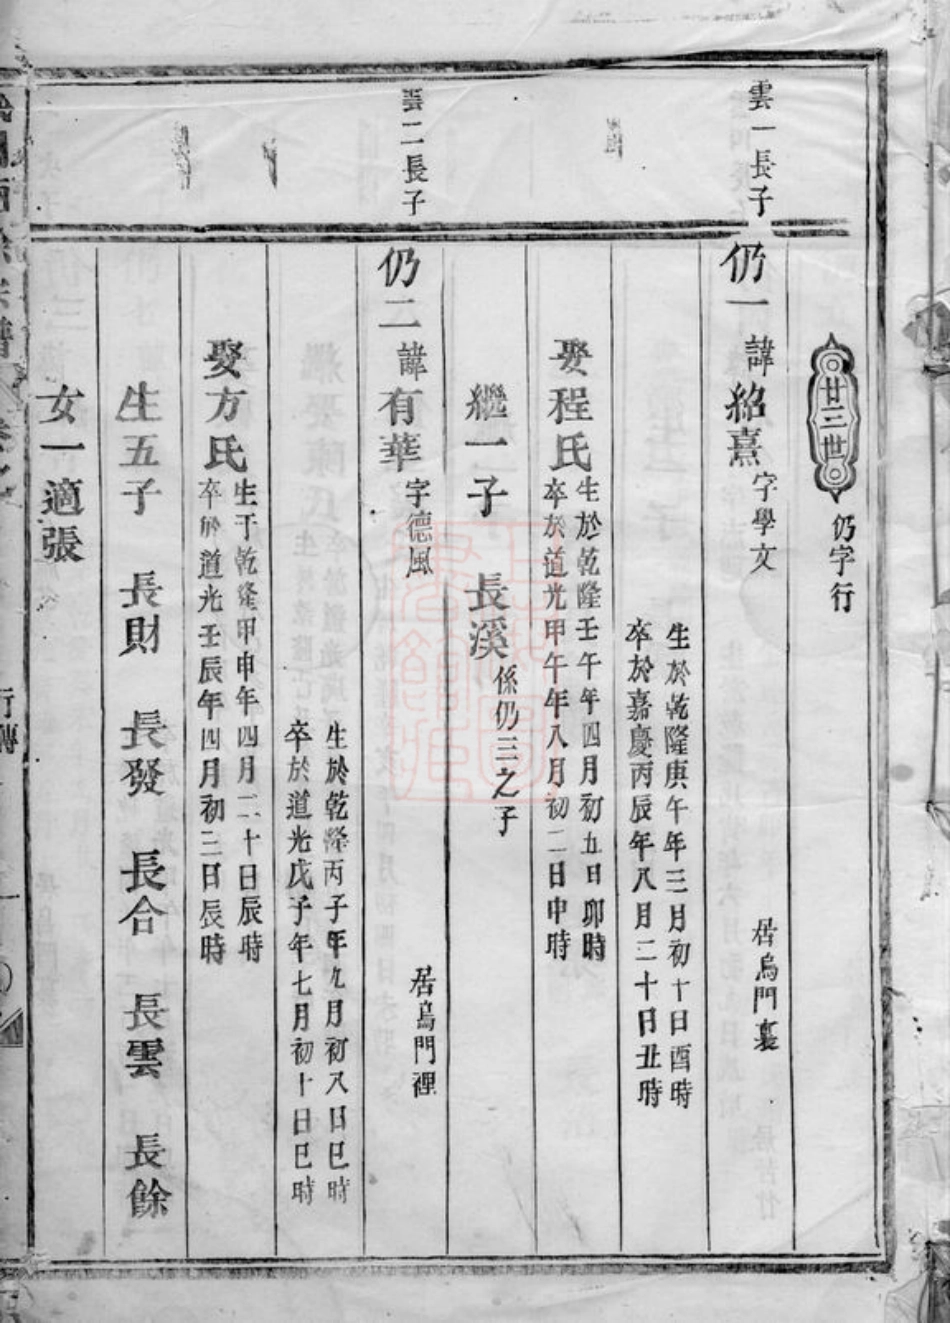 廿三世 仍字行
雲一長子
仍一 諱紹熹 字學文 居烏門裏
生於乾隆庚午年三月初十日酉時
卒於嘉慶丙辰年八月二十日丑時
娶程氏
生於乾隆壬午年四月初五日卯時
卒於道光甲午年八月初二日申時
繼一子 長溪 係仍三之子
雲二長子
仍二 諱有華 字德風 居烏門裡
生於乾隆丙子年九月初八日巳時
卒於道光戊子年七月初十日巳時
娶方氏
生于乾隆甲申年四月二十日辰時
卒於道光壬辰年四月初三日辰時
生五子 長財 長發 長合 長雲 長餘
女一適張
行傳